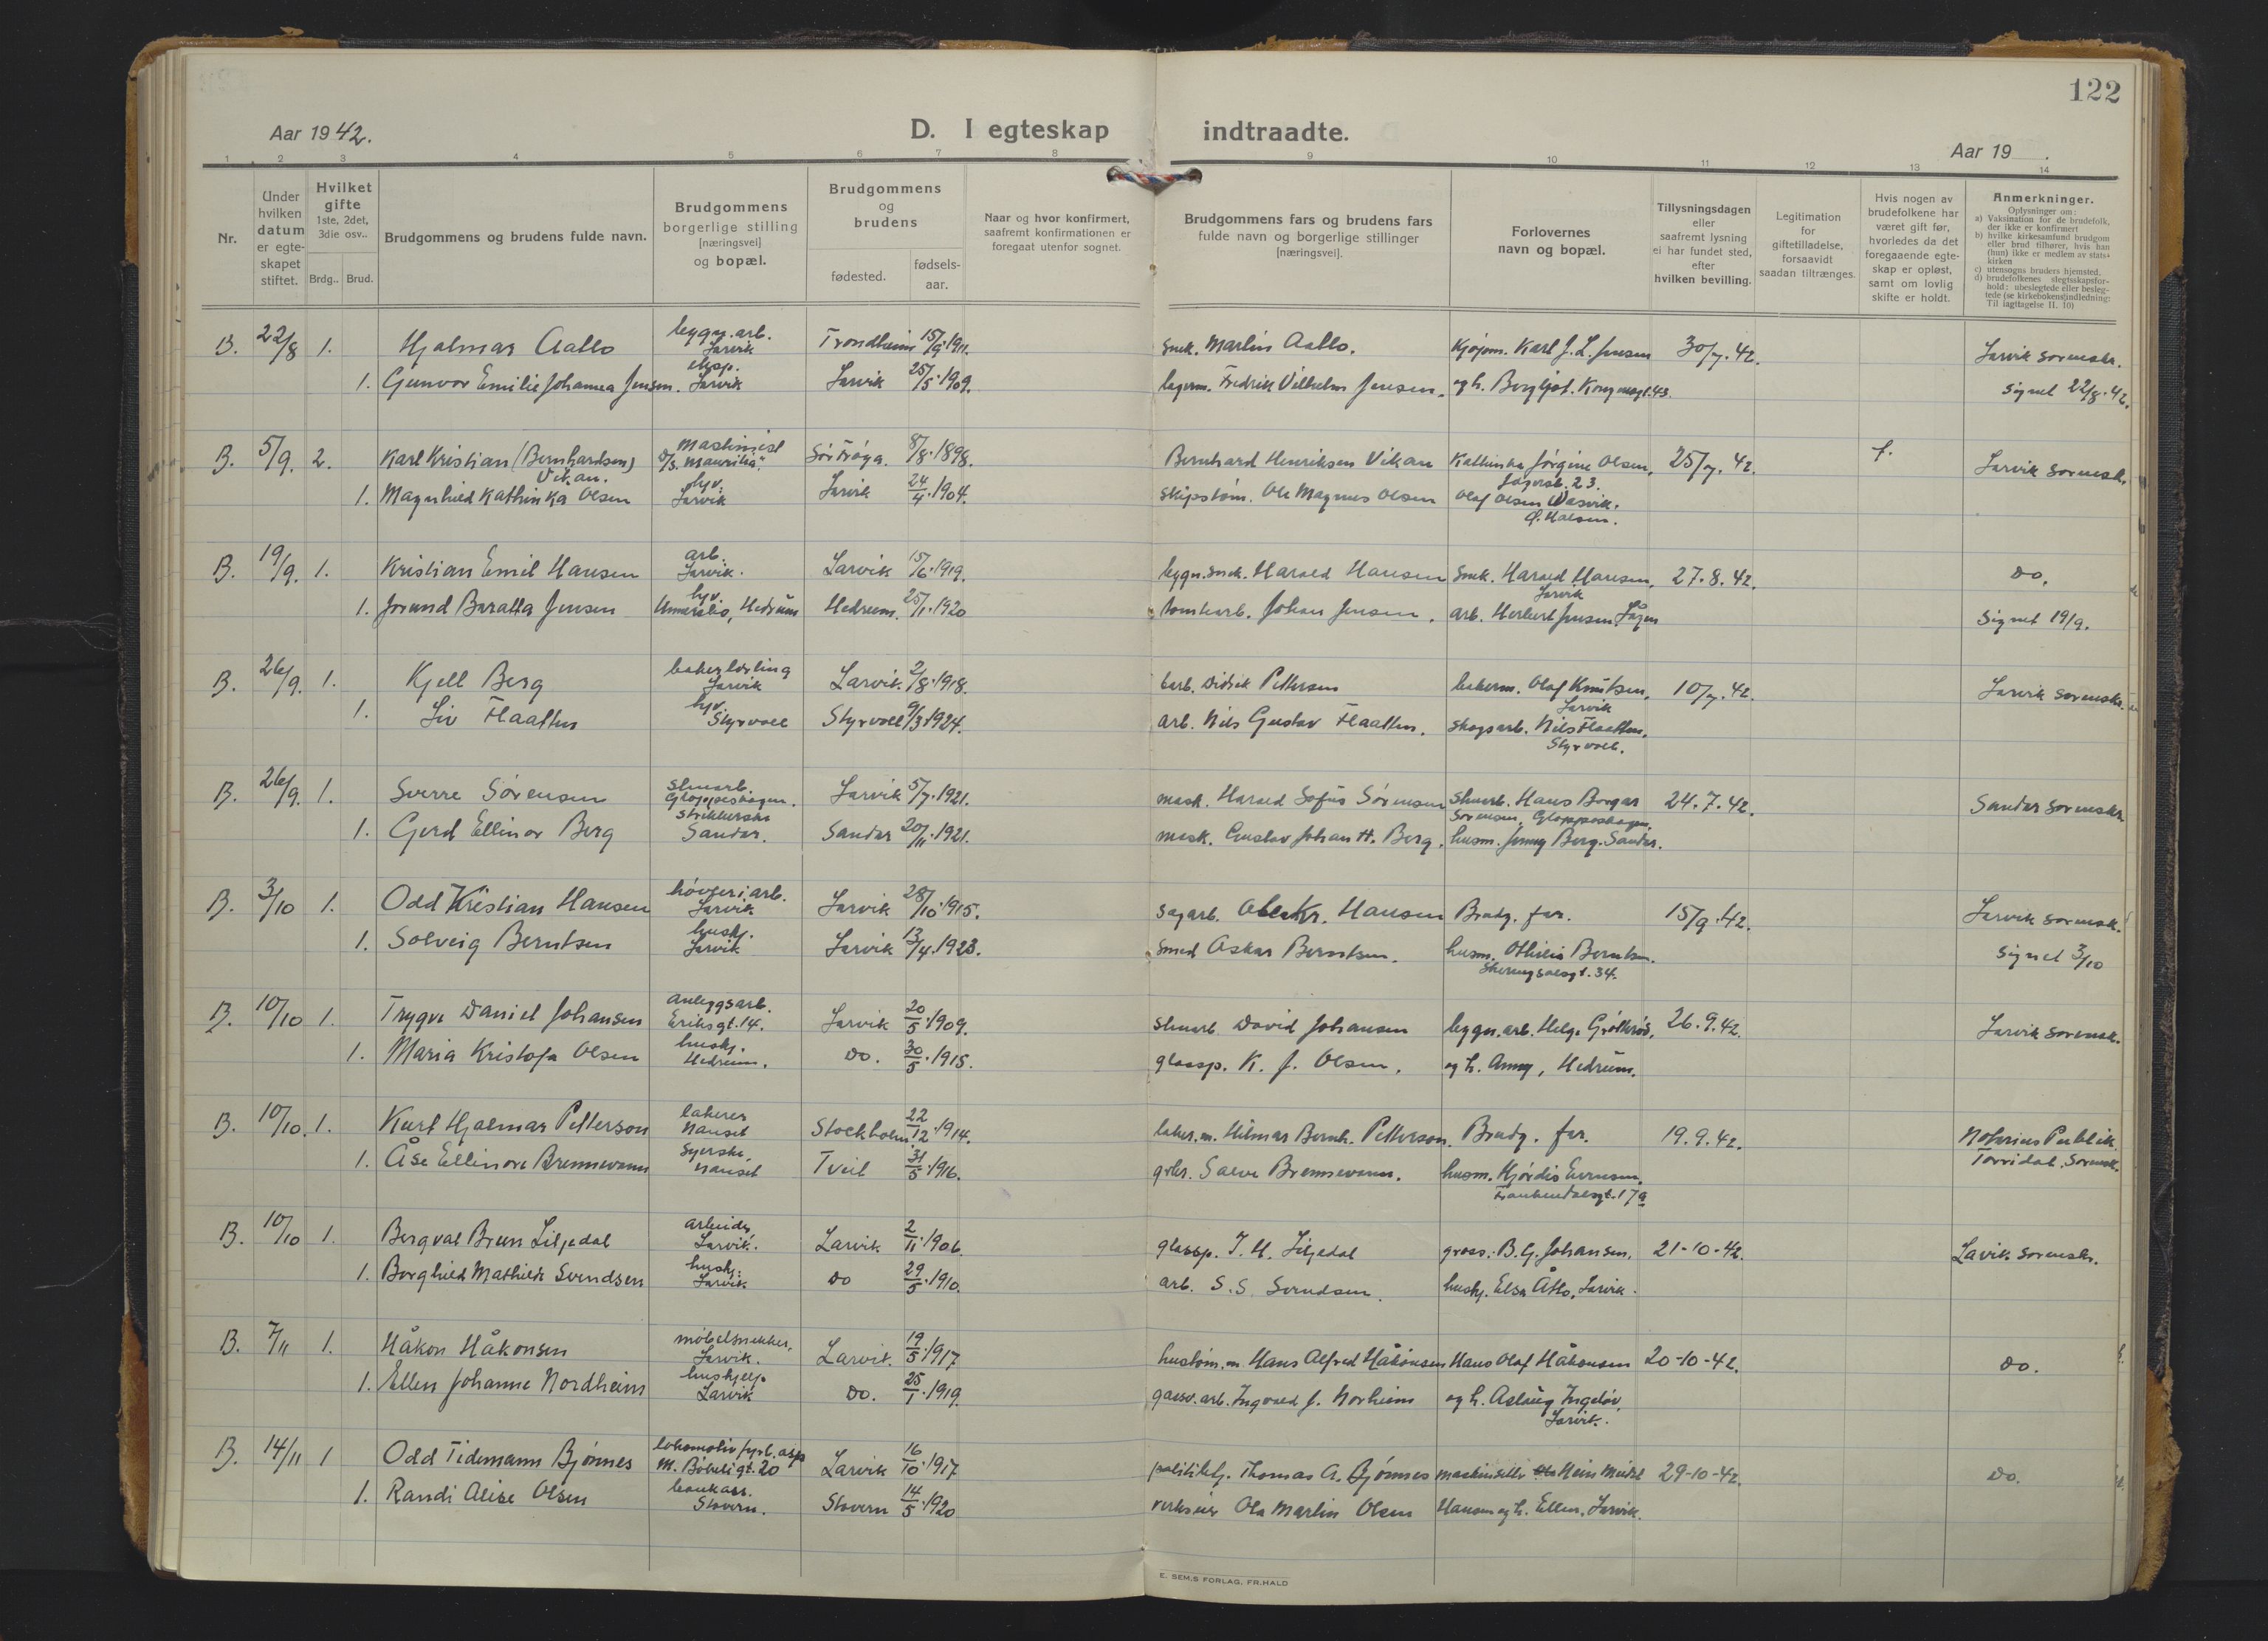 122
Aar 1942.
D. I egteskap indtraadte.
Aar 19 .
1 2 3 4 5 6 7 8 9 10 11 12 13 14
Nr.
Under hvilken datum er egte-skapet stiftet.
Hvilket gifte 1ste, 2det, 3die osv..
Brdg.. Brud.
Brudgommens og brudens fulde navn.
Brudgommens borgerlige stilling [næringsvei] og bopæl.
Brudgommens og brudens
fødested.
fødsels-aar.
Naar og hvor konfirmert, saafremt konfirmationen er foregaat utenfor sognet.
Brudgommens fars og brudens fars fulde navn og borgerlige stillinger [næringsvei].
Forlovernes navn og bopæl.
Tillysningsdagen eller saafremt lysning ei har fundet sted, efter hvilken bevilling.
Legitimation for giftetilladelse, forsaavidt saadan tiltrænges.
Hvis nogen av brudefolkene har været gift før, hvorledes da det foregaaende egte-skap er opløst, samt om lovlig skifte er holdt.
Anmerkninger.
Oplysninger om:
a) Vaksination for de brudefolk, der ikke er konfirmert
b) hvilke kirkesamfund brudgom eller brud tilhører, hvis han (hun) ikke er medlem av stats-kirken
c) utensogns bruders hjemsted.
d) brudefolkenes slegtsskapsfor-hold: ubeslegtede eller besleg-tede (se kirkebokens indledning: Til iagttagelse II. 10)
B. 22/8 1. Hjalmar Aatlo bygn.arb. Larvik Trondheim 15/9.1911. Snek. Martin Aatlo. Karl J. L. Jensen 30/7.42. Larvik sorenskr.
1. Gunvor Emilie Johanna Jensen. eksp. Larvik Larvik 25/5.1909. lagerm. Fredrik Vilhelm Jensen. og h. Bergljot. Kongensgt.43. Signet 22/8.42.
B. 5/9. 2. Karl Kristian (Bernhardsen) Vikan. Maskinist D/S. "Mauritia". Sør Frøya. 8/8.1898. Bernhard Henriksen Vikan Kathinka Jørgine Olsen, 23. 25/7.42. f. Larvik sorensk.
1. Magnhild Kathinka Olsen hjv. Larvik Larvik 24/4.1904. Skipstøm. Ole Magnus Olsen Olaf Olsen Ø. Halsen.
B. 19/9. 1. Kristian Emil Hansen arb. Larvik. Larvik 15/6.1919. bygn.snek. Harald Hansen Snek. Harald Hansen, Larvik 27.8.42. do.
1. Jorund Baratta Jensen hjv. Hedrum Hedrum. 25/1.1920 tomtearb. Johan Jensen. arb. Herbert Jensen, Lågen Signet 19/9.
B. 26/9. 1. Kjell Berg bakerlærling Larvik Larvik. 2/8.1918. arb. Didrik Pettersen bakerm. Olaf Knutsen, Larvik 10/7.42. Larvik sorenskr.
1. Liv Flaatten hjv. Styrvoll Styrvoll 9/3.1924. arb. Nils Gustav Flaatten. Skogsarb. Nils Flaatten, Styrvoll.
B. 26/9. 1. Sverre Sørensen Stenarb. Gloppeskogen. Larvik 5/7.1921. mask. Harald Sofus Sørensen Stenarb. Hans Borgar Sørensen, Gloppeskogen. 24.7.42. Sandar sorenskr.
1. Gerd Ellinor Berg strikkerske Sandar. Sandar 20/11.1921. mask. Gustav Johan H. Berg. husm. Jenny Berg. Sandar.
B. 3/10 1. Odd Kristian Hansen høvleriarb. Larvik Larvik 28/10.1915. Sagarb. Ole Kr. Hansen Brudg. far. 15/9.42. Larvik sorensk.
1. Solveig Berntsen hushj. Larvik Larvik 13/4.1923. Smed Askar Berntsen. husm. Othilie Berntsen. Skiringssalsgt.34. Signet 3/10
B. 10/10 1. Trygve Daniel Johansen anleggsarb. Eriksgt.14. Larvik 20/5.1909. Stenarb David Johansen bygn.arb. Helge Grøtterød, 26.9.42. Larvik sorensk.
1. Maria Kristofa Olsen hushj. Hedrum. do. 30/5.1915. glassp. K. J. Olsen. og h. Anny, Hedrum.
B. 10/10. 1. Kurt Hjalmar Petterson lakerer Nanset Stockholm. 22/12.1914. laker.m. Hilmar Bernh. Petterson. Brudg. far. 19.9.42. Notarius Publik.
1. Åse Ellinore Brennevann Syerske, Nanset Tveit 31/5.1916. grbr. Salve Brennevann. husm. Hjørdis Evensen, Frankendalsgt.17a Torridal. Sorensk.
B. 10/10 1. Bergval Brun Liljedal arbeider Larvik. Larvik 2/11.1906. glassp. T. H. Liljedal gross.: B. G. Johansen. 21-10-42. Lavik sorenskr.
1. Borghild Mathilde Svendsen hushj. Larvik do 29/5.1910. arb. S. S. Svendsen. hushj. Elsa Åtlo, Larvik.
B. 7/11 1. Håkon Håkonsen møbelsnekker, Larvik. Larvik. 19/5.1917 hustøm.m. Hans Alfred Håkonsen Hans Olaf Håkonsen 20-10-42. do.
1. Ellen Johanne Nordheim hushjelp. Larvik do. 25/1.1919. arb. Ingvald J. Norheim og h. Aslaug Ingeløv, Larvik.
B. 14/11 1 Odd Tidemann Bjønnes lokomotivfyrb.asp M. Bøkeligt.20 Larvik 16/10.1917 politibtj. Thomas A. Bjønnes maskinsetter 29-10-42. do.
1. Randi Alise Olsen bankass. Stavern. Stavern 14/5.1920 verkseier Ole Martin Olsen Hansen og h. Ellen, Larvik.
E. SEM.S FORLAG, FR.HALD